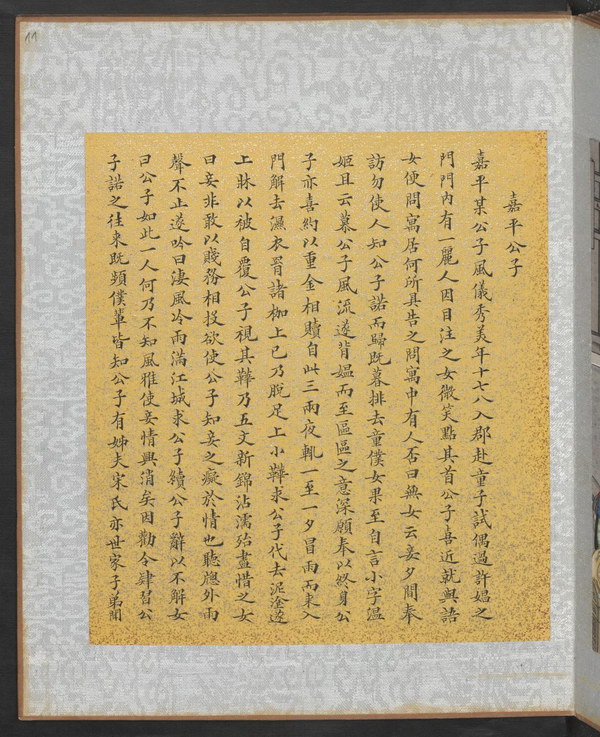 11
嘉平公子
嘉平某公子風儀秀美年十七八入郡赴童子試偶過許娼之
門門內有一麗人因目注之女微笑點其首公子喜近就與語
女便問寓居何所具告之問寓中有人否曰無女云妾夕間奉
訪勿使人知公子諾而歸既暮排去童僕女果至自言小字溫
姬且云慕公子風流遂背媼而至區區之意深願奉以終身公
子亦喜約以重金相贖自此三兩夜輒一至一夕冒雨而來入
門解去濕衣罥諸枷上已乃脫足上小鞾求公子代去泥塗遂
上牀以被自覆公子視其鞾乃五文新錦沾濡殆盡惜之女
曰妾非敢以賤務相役欲使公子知妾之癡於情也聽牕外雨
聲不止遂吟曰淒風冷雨滿江城求公子續公子辭以不解女
曰公子如此一人何乃不知風雅使妾情興消矣因勸令肄習公
子諾之往來既頻僕輩皆知公子有姊夫宋氏亦世家子弟聞